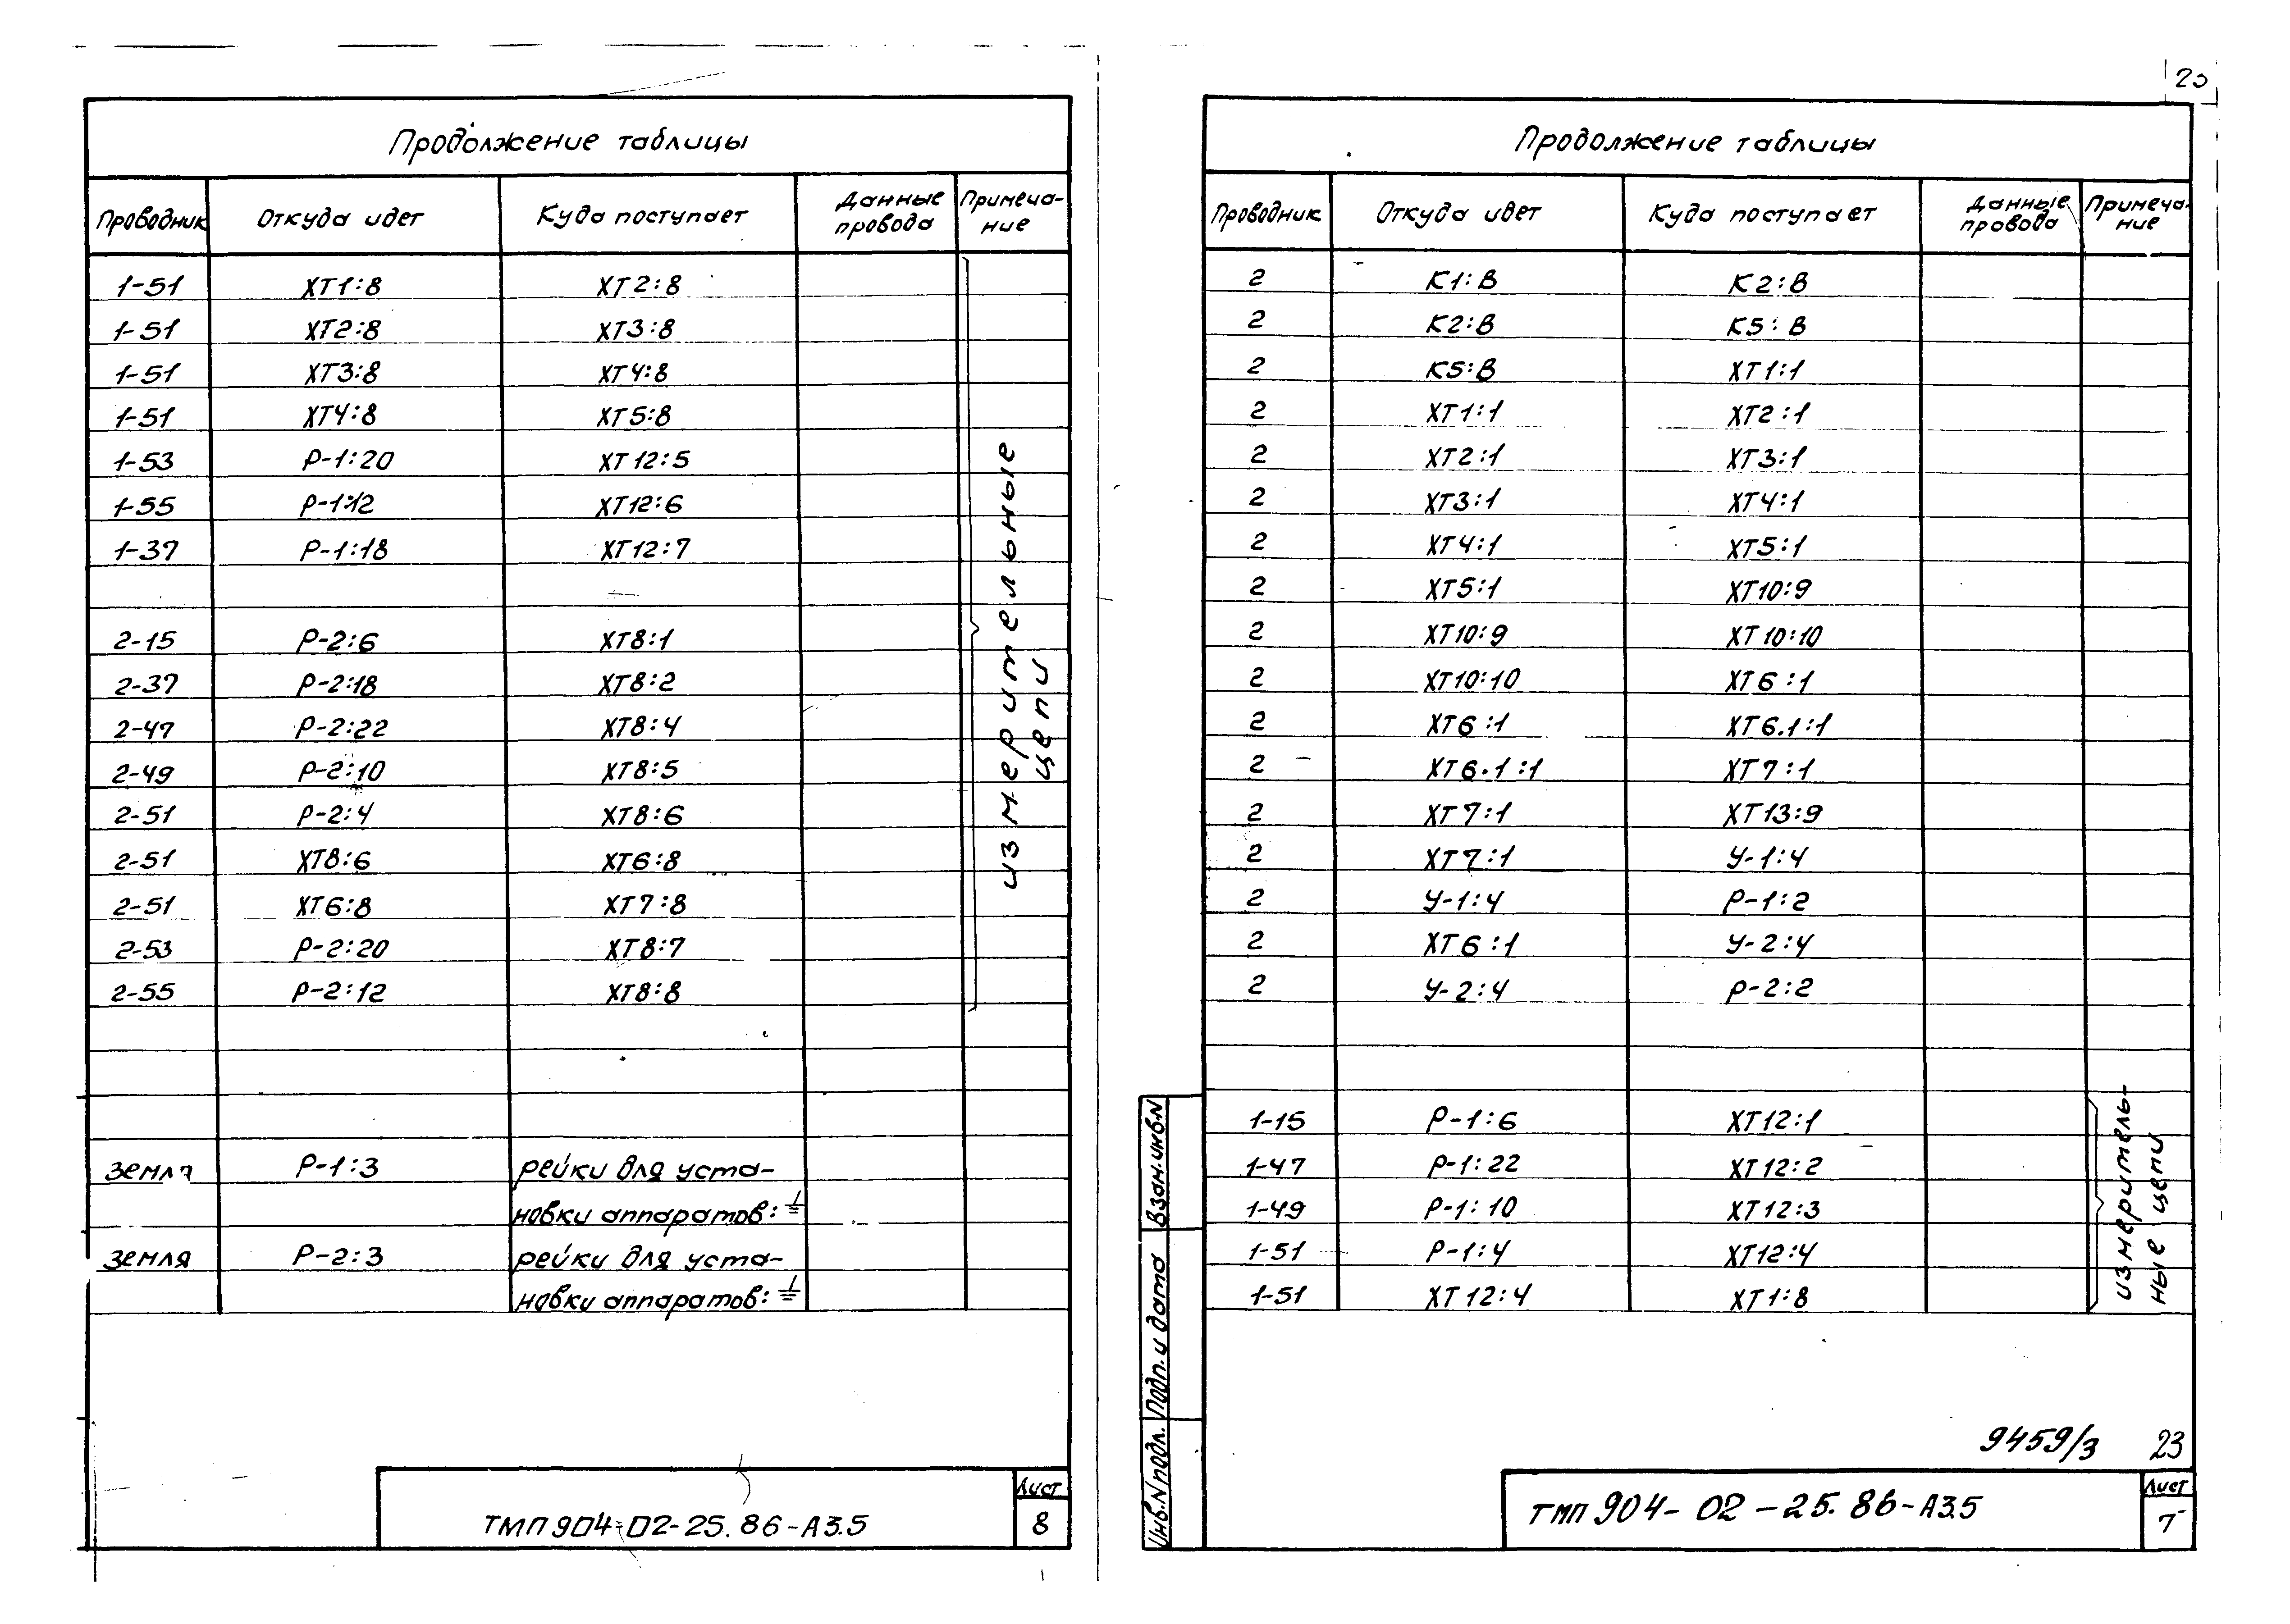 Продолжение таблицы
Проводник Откуда идет Куда поступает Данные провода Примеча-ние
1-51 ХТ1:8 ХТ2:8
1-51 ХТ2:8 ХТ3:8
1-51 ХТ3:8 ХТ4:8
1-51 ХТ4:8 ХТ5:8
1-53 Р-1:20 ХТ12:5
1-55 Р-1:12 ХТ12:6
1-37 Р-1:18 ХТ12:7
2-15 Р-2:6 ХТ8:1
2-37 Р-2:18 ХТ8:2
2-47 Р-2:22 ХТ8:4
2-49 Р-2:10 ХТ8:5
2-51 Р-2:4 ХТ8:6
2-51 ХТ8:6 ХТ6:8
2-51 ХТ6:8 ХТ7:8
2-53 Р-2:20 ХТ8:7
2-55 Р-2:12 ХТ8:8
измерительные
цепи
земля Р-1:3 рейки для уста-
новки аппаратов: ⏚
земля Р-2:3 рейки для уста-
новки аппаратов: ⏚
ТМП 904-02-25.86-А3.5
Лист
8
Продолжение таблицы
Проводник Откуда идет Куда поступает Данные провода Примеча-ние
2 К1:В К2:В
2 К2:В К5:В
2 К5:В ХТ1:1
2 ХТ1:1 ХТ2:1
2 ХТ2:1 ХТ3:1
2 ХТ3:1 ХТ4:1
2 ХТ4:1 ХТ5:1
2 ХТ5:1 ХТ10:9
2 ХТ10:9 ХТ10:10
2 ХТ10:10 ХТ6:1
2 ХТ6:1 ХТ6.1:1
2 ХТ6.1:1 ХТ7:1
2 ХТ7:1 ХТ13:9
2 ХТ7:1 У-1:4
2 У-1:4 Р-1:2
2 ХТ6:1 У-2:4
2 У-2:4 Р-2:2
1-15 Р-1:6 ХТ12:1
1-47 Р-1:22 ХТ12:2
1-49 Р-1:10 ХТ12:3
1-51 Р-1:4 ХТ12:4
1-51 ХТ12:4 ХТ1:8
измеритель-
ные цепи
Инв.N подл. Подп. и дата Взам.инв.N
9459/3 23
ТМП 904-02-25.86-А3.5
Лист
7